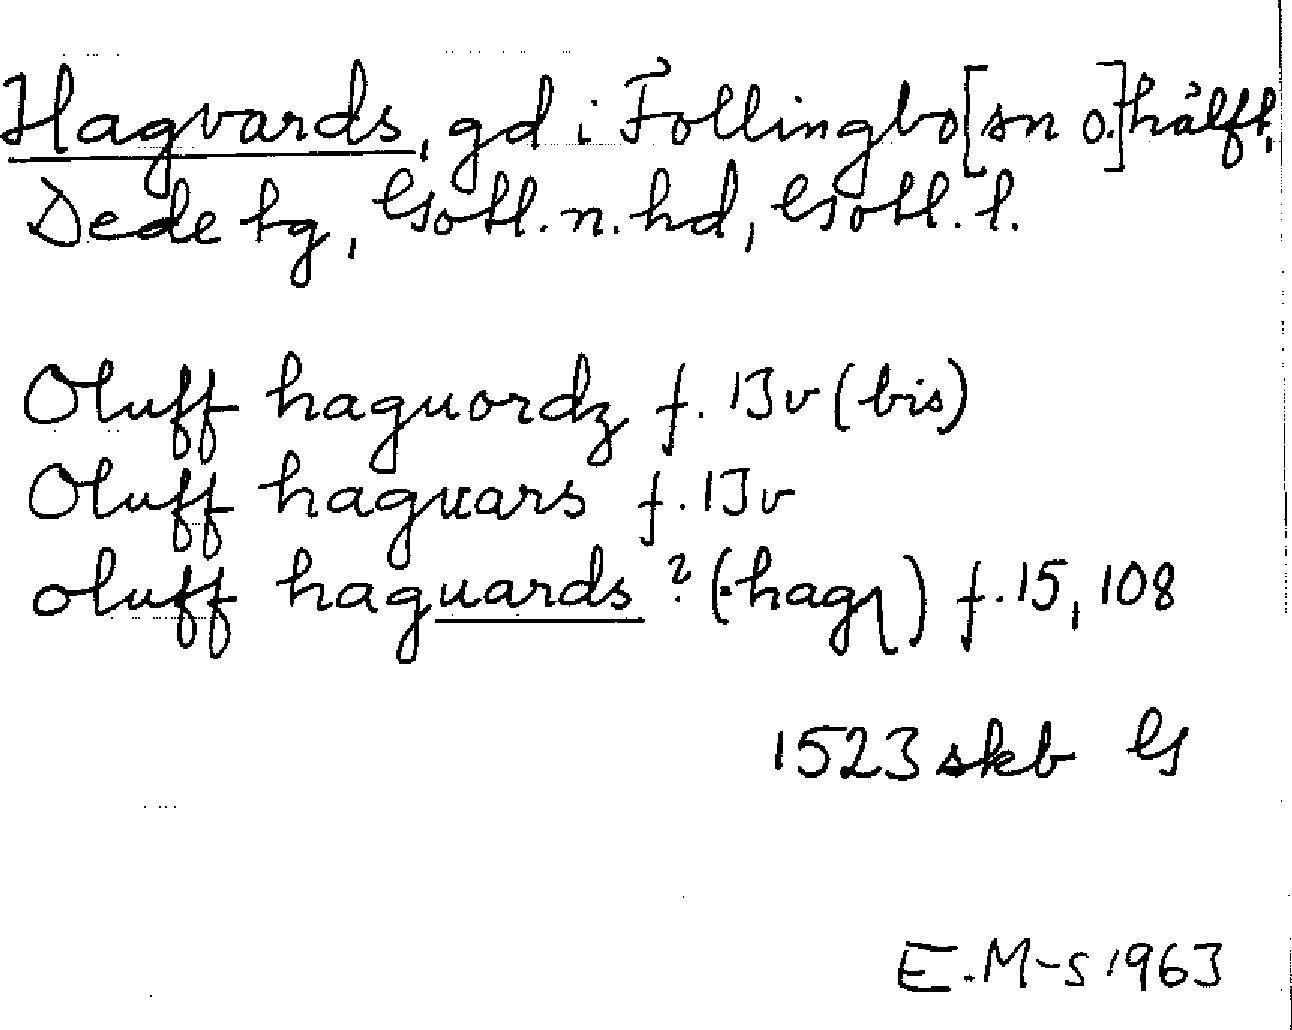 Hagvards, gd i Follingbo [sn o.] hälft,
Dede tg, Gotl. n. hd, Gotl. l.
Oluff haguordz f. 13v (bis)
Oluff haguars f. 13v
oluff haguards ? (hag) f. 15, 108
1523 skb G
E. M-s 1963